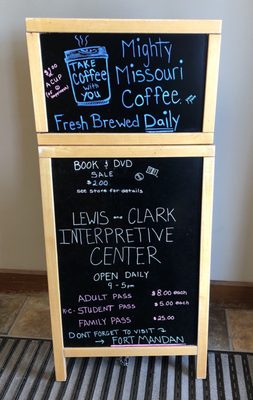 TAKE
COFFEE
WITH
YOU
A CUP
Mighty
Missouri
Coffee.
Fresh Brewed Daily
BOOK & DVD
SALE
$2.00
see store for details
LEWIS and CLARK
INTERPRETIVE
CENTER
OPEN DAILY
9-5pm
ADULT PASS $8.00 each
K-C-STUDENT PASS $5.00 each
FAMILY PASS $25.00
DON'T FORGET TO VISIT
FORT MANDAN